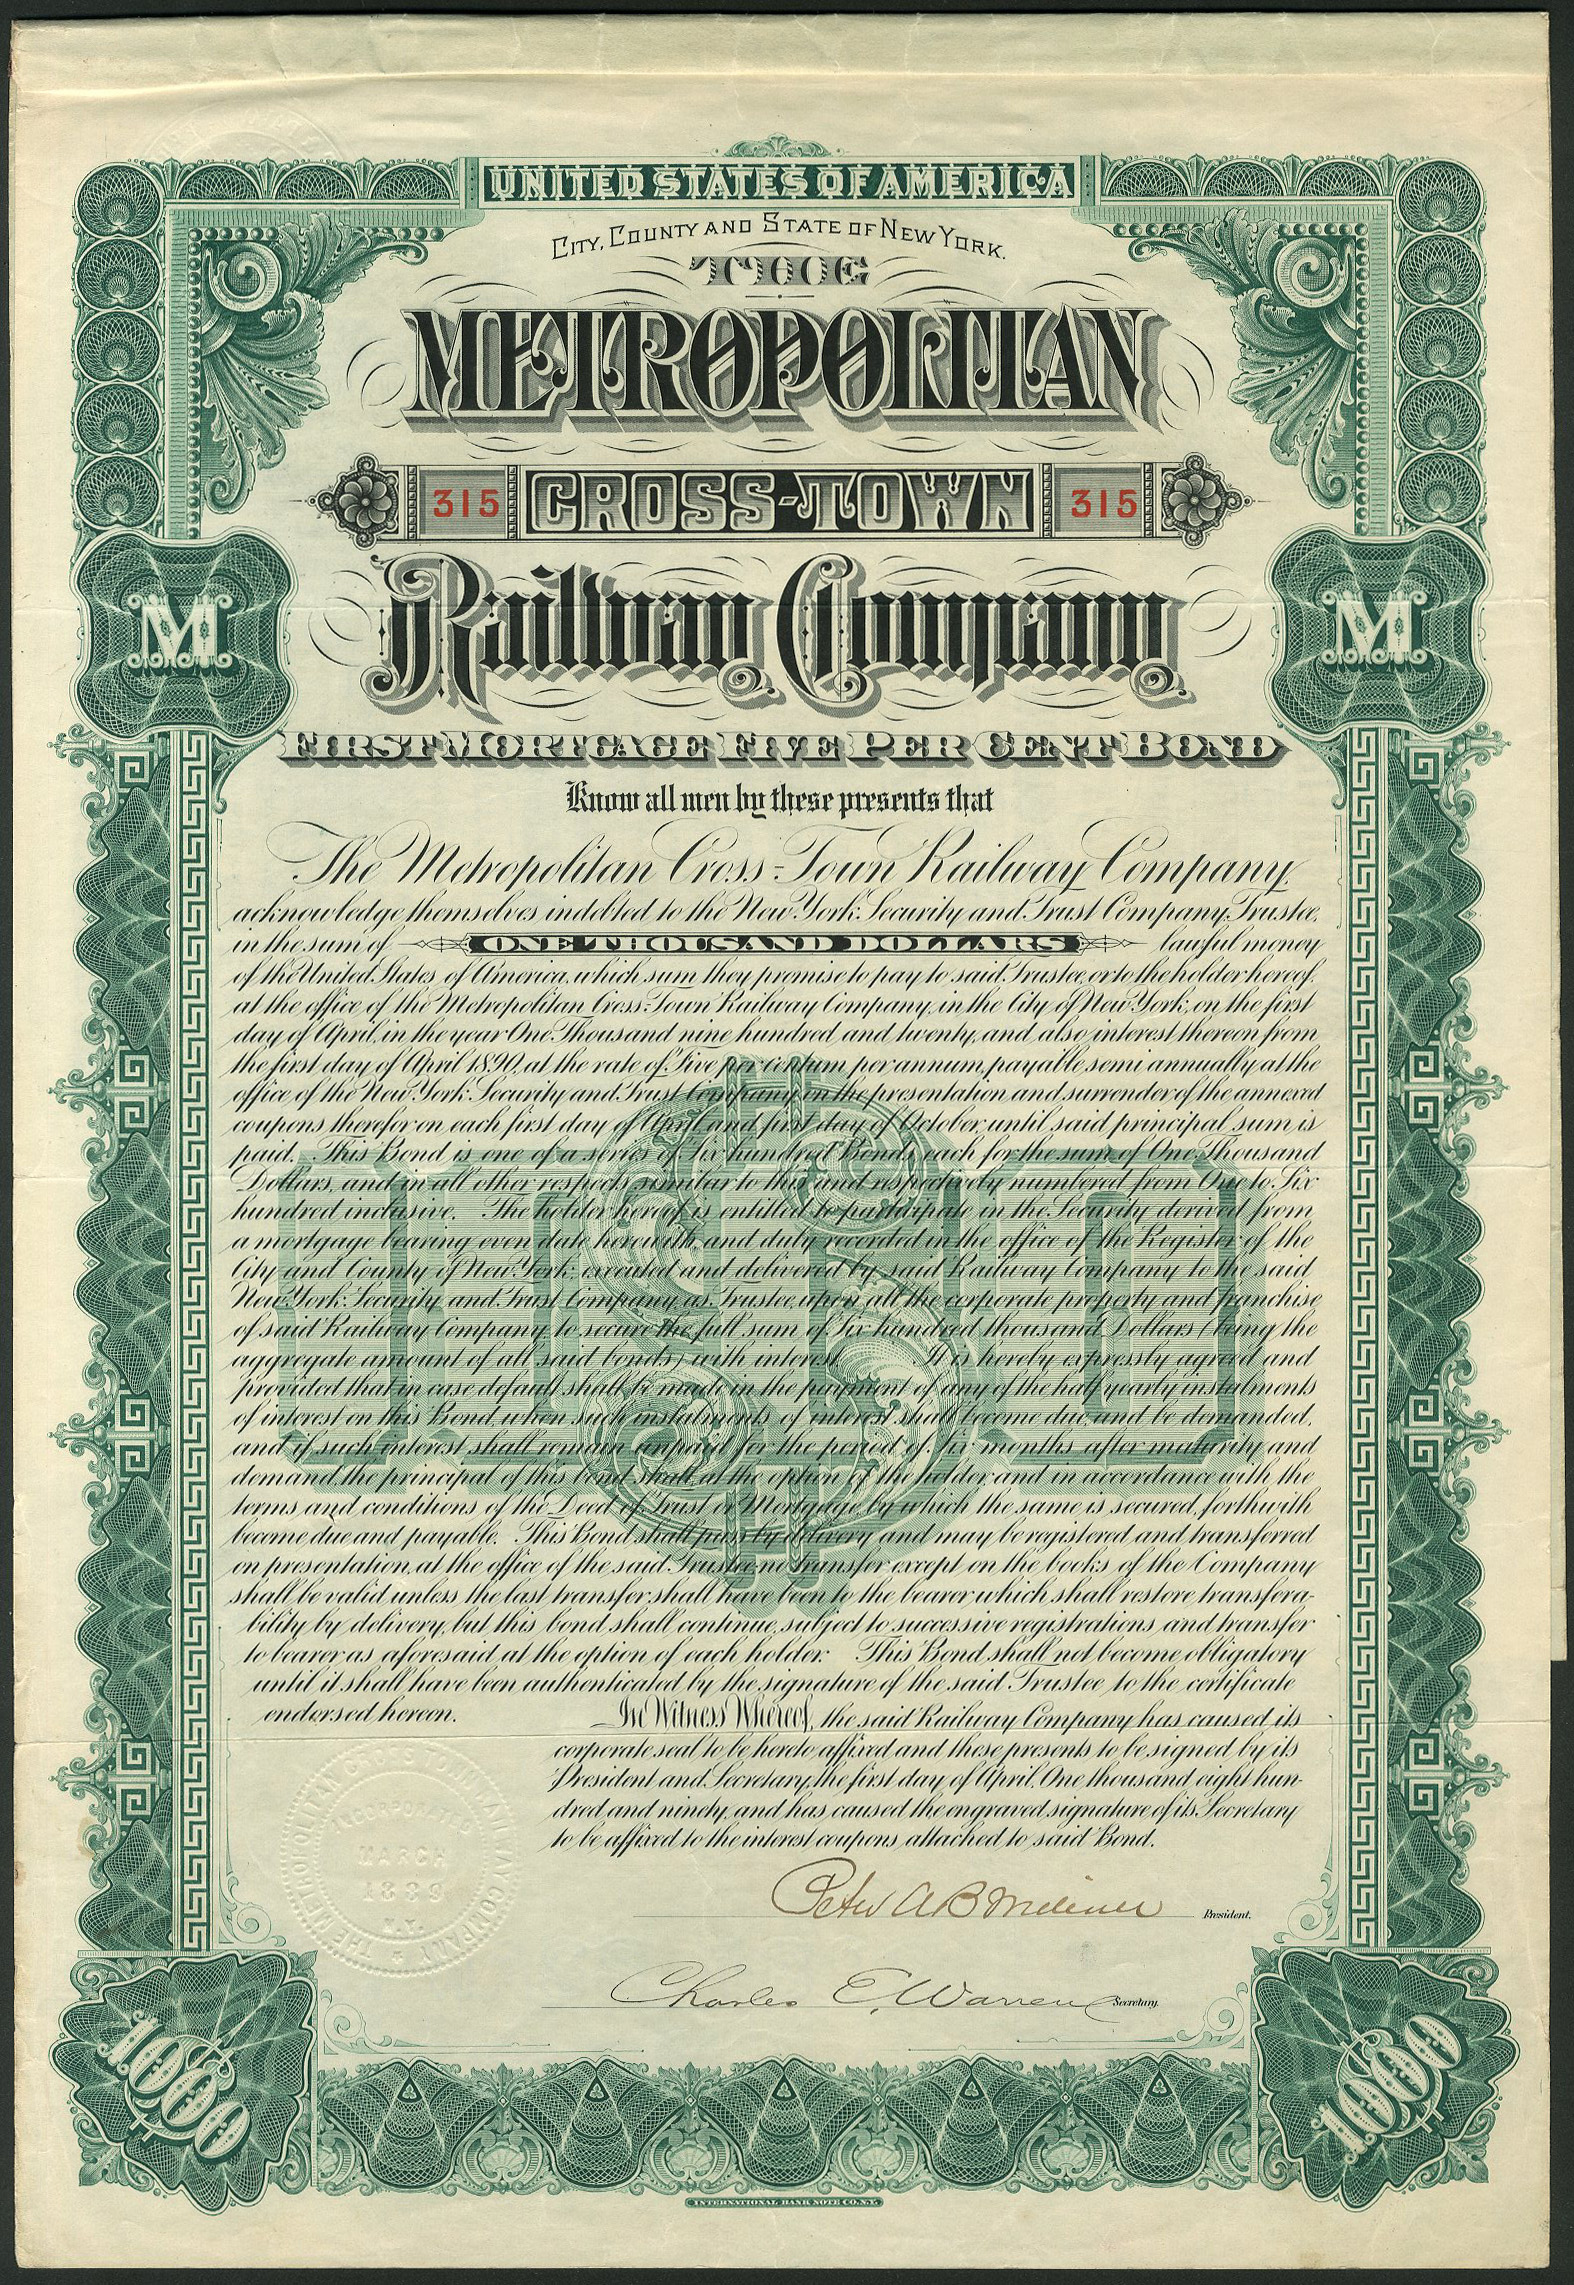 UNITED STATES OF AMERICA
CITY, COUNTY AND STATE OF NEW YORK.
THE
METROPOLITAN
315 CROSS-TOWN 315
Railway Company
M M
FIRST MORTGAGE FIVE PER CENT BOND
Know all men by these presents that
The Metropolitan Cross-Town Railway Company,
acknowledge themselves indebted to the New York Security and Trust Company, Trustee,
in the sum of ONE THOUSAND DOLLARS lawful money
of the United States of America, which sum they promise to pay to said Trustee, or to the holder hereof,
at the office of the Metropolitan Cross Town Railway Company, in the City of New York, on the first
day of April, in the year One Thousand nine hundred and twenty, and also interest thereon from
the first day of April 1890, at the rate of Five per centum per annum, payable semi annually at the
office of the New York Security and Trust Company, on the presentation and surrender of the annexed
coupons therefor on each first day of April and first day of October, until said principal sum is
paid. This Bond is one of a series of Six hundred Bonds, each for the sum of One Thousand
Dollars, and in all other respects similar to this and respectively numbered from One to Six
hundred inclusive. The holder hereof is entitled to participate in the Security derived from
a mortgage bearing even date herewith, and duly recorded in the office of the Register of the
City and County of New York, executed and delivered by said Railway Company to the said
New York Security and Trust Company, as Trustee, upon all the corporate property and franchise
of said Railway Company, to secure the full sum of Six hundred thousand Dollars (being the
aggregate amount of all said bonds) with interest. It is hereby expressly agreed and
provided that in case default shall be made in the payment of any of the half yearly instalments
of interest on this Bond, when such instalments of interest shall become due, and be demanded,
and if such interest shall remain unpaid for the period of Six months after maturity and
demand, the principal of this bond shall, at the option of the holder, and in accordance with the
terms and conditions of the Deed of Trust or Mortgage, by which the same is secured, forthwith
become due and payable. This Bond shall pass by delivery and may be registered and transferred
on presentation, at the office of the said Trustee, no transfer except on the books of the Company
shall be valid unless the last transfer shall have been to the bearer which shall restore transfera-
bility by delivery, but this bond shall continue, subject to successive registrations and transfer
to bearer as aforesaid at the option of each holder. This Bond shall not become obligatory
until it shall have been authenticated by the signature of the said Trustee to the certificate
endorsed hereon. In Witness Whereof, the said Railway Company has caused its
corporate seal to be hereto affixed and these presents to be signed by its
President and Secretary, the first day of April, One thousand eight hun-
dred and ninety, and has caused the engraved signature of its Secretary
to be affixed to the interest coupons attached to said Bond.
THE METROPOLITAN CROSS-TOWN RAILWAY COMPANY
MARCH
1889
N.Y.
Peter A B Widener President.
Charles E. Warren Secretary.
$1000 $1000
INTERNATIONAL BANK NOTE CO. N.Y.